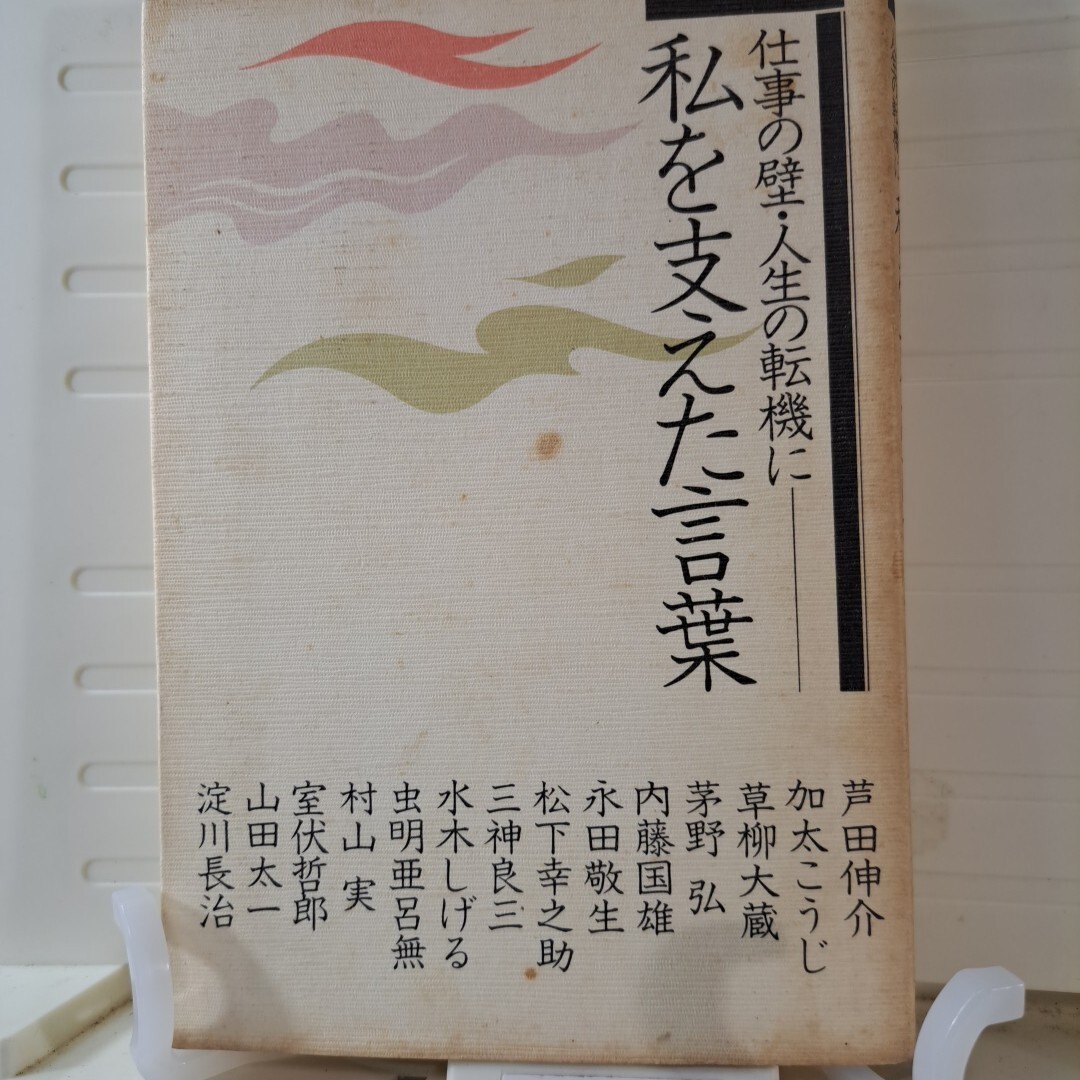 仕事の壁・人生の転機に――
私を支えた言葉
芦田伸介
加太こうじ
草柳大蔵
茅野弘
内藤国雄
永田敬生
松下幸之助
三神良三
水木しげる
虫明亜呂無
村山実
室伏哲郎
山田太一
淀川長治